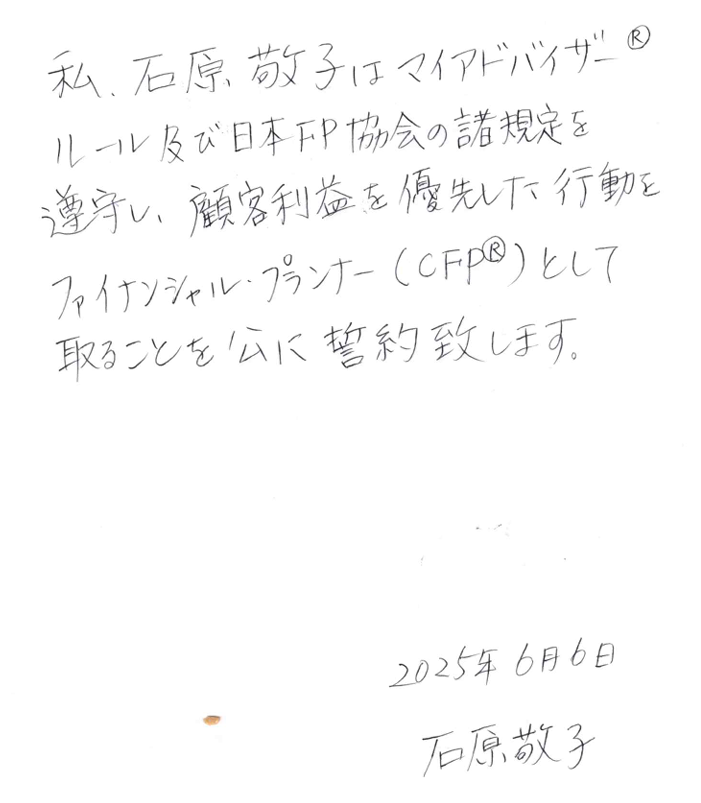 私、石原敬子はマイアドバイザー®
ルール及び日本FP協会の諸規定を
遵守し、顧客利益を優先した行動を
ファイナンシャル・プランナー(CFP®)として
取ることを公に誓約致します。
2025年6月6日
石原敬子